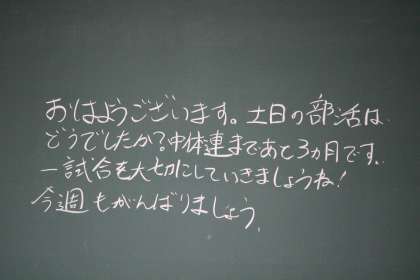 おはようございます。土日の部活は
どうでしたか?中体連まであと3ヵ月です。
一試合を大切にしていきましょうね!
今週もがんばりましょう。